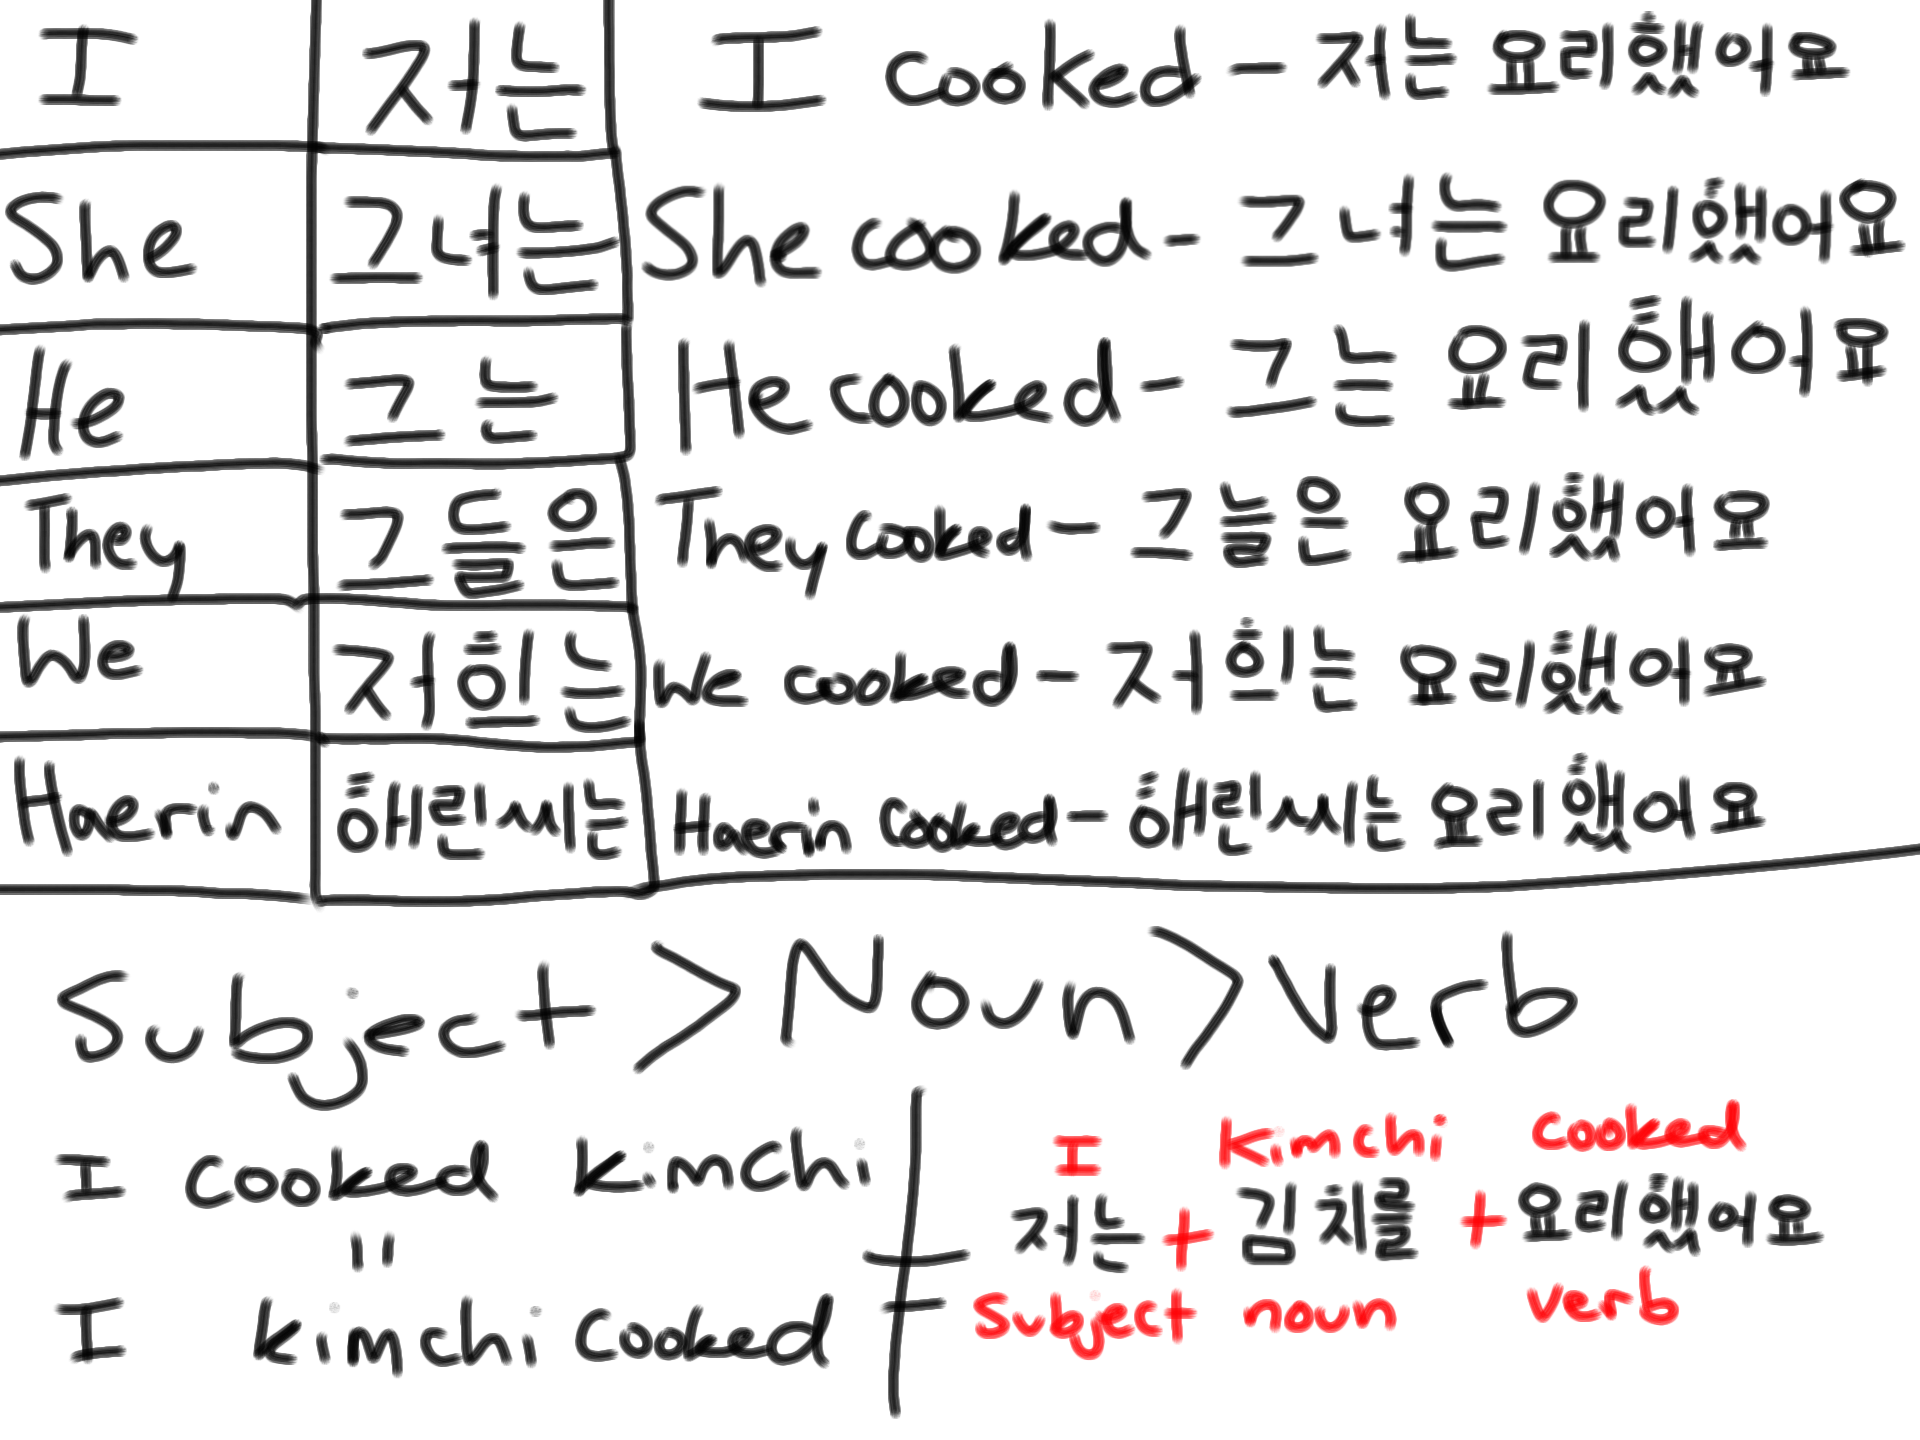 I 저는 I cooked - 저는 요리했어요
She 그녀는 She cooked - 그녀는 요리했어요
He 그는 He cooked - 그는 요리했어요
They 그들은 They cooked - 그들은 요리했어요
We 저희는 We cooked - 저희는 요리했어요
Haerin 해린씨는 Haerin cooked - 해린씨는 요리했어요
Subject > Noun > Verb
I cooked kimchi
"
I kimchi cooked
I Kimchi cooked
저는 + 김치를 + 요리했어요
Subject noun verb